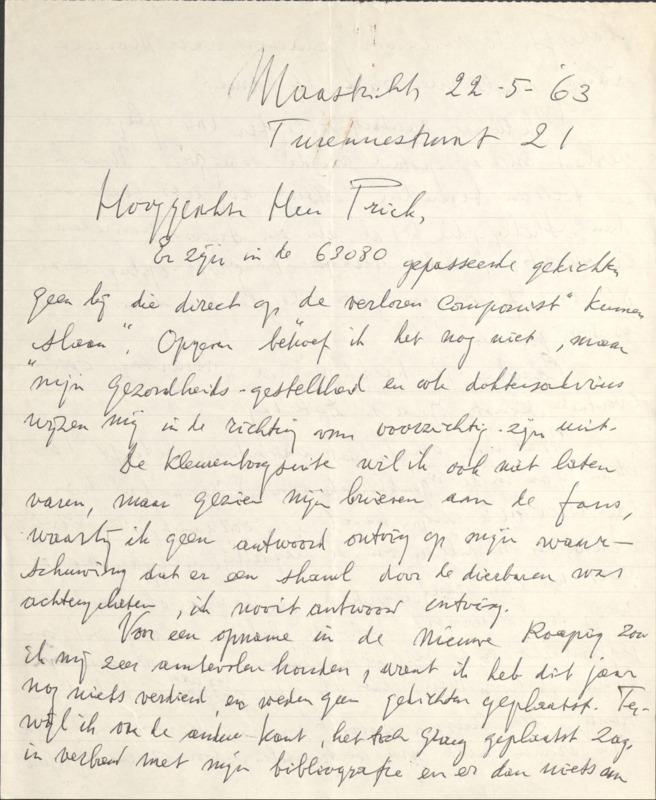 Maastricht 22-5-'63
Turennestraat 21
Hooggeachte Heer Prick,
Er zijn in de 63080 gepasseerde gedichten
geen bij die direct op "de verloren componist" kunnen
slaan". Opgeven behoef ik het nog niet, maar
mijn gezondheids-gesteldheid en ook doktersadvies
wijzen mij in de richting van voorzichtig-zijn uit.
De Klemenborgsuite wil ik ook niet laten
varen, maar gezien mijn brieven aan de fans,
waarbij ik geen antwoord ontving op mijn waar-
schuwing dat er een shawl door de dierbaren was
achtergelaten, ik nooit antwoord ontving.
Voor een opname in de Nieuwe Roeping zou
ik mij zeer aanbevolen houden, want ik heb dit jaar
nog niets verdiend, en werden geen gedichten geplaatst. Ter-
wijl ik van de andere kant, het toch graag geplaatst zag,
in verband met mijn bibliografie en er dan niets aan